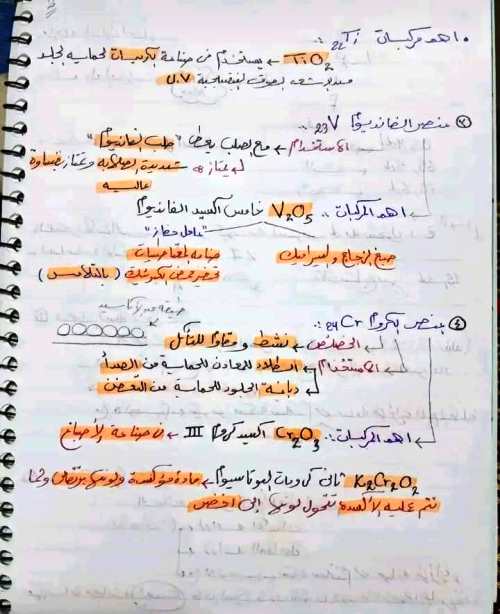 • اهم مركبات 22Ti :.
TiO2 ← يستخدم فى صناعة كريمات لحماية الجلد
من الأشعة الفوق البنفسجية U.V
③ عنصر الفانديوم 23V
الاستخدام ← مع الصلب يعطى "صلب الفانديوم"
يمتاز شديدة الصلابه وتمتاز بقساوة
عاليه
اهم المركبات :. V2O5 خامس اكسيد الفانديوم
"عامل حفاز"
صبغ الزجاج والسيراميك
صناعة المغناطيسات
تحضير حمض الكبريتيك (بالتلامس)
④ عنصر الكروم 24Cr :.
الخصائص ← نشط ومقاوم للتآكل
الاستخدام ← طلاء المعادن للحماية من الصدأ
دباغة الجلود للحماية من التعفن
اهم المركبات :. Cr2O3 اكسيد كروم III ← فى صناعة الاصباغ
K2Cr2O2 ثانى كرومات البوتاسيوم ← مادة مؤكسدة ولونها برتقالى ولما
تتم عليه الأكسدة تتحول لونها إلى اخضر